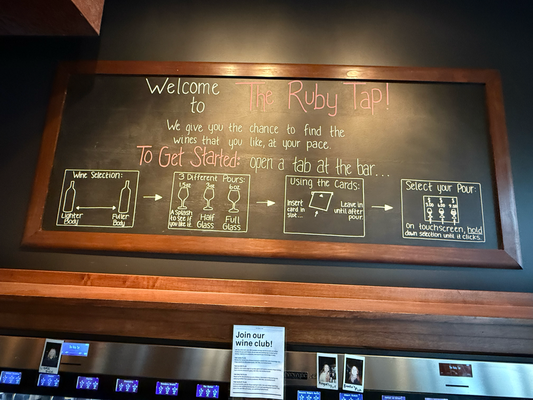 Welcome
to
The Ruby Tap!
We give you the chance to find the
wines that you like, at your pace.
To Get Started: open a tab at the bar...
Wine Selection:
Lighter
Body
Fuller
Body
3 Different Pours:
1.5oz
3oz
6oz
A Splash
to see if
you like it.
Half
Glass
Full
Glass
Using the Cards:
Insert
card in
slot...
Leave in
until after
pour
Select your Pour:
On touchscreen, hold
down selection until it clicks.
Join our
wine club!